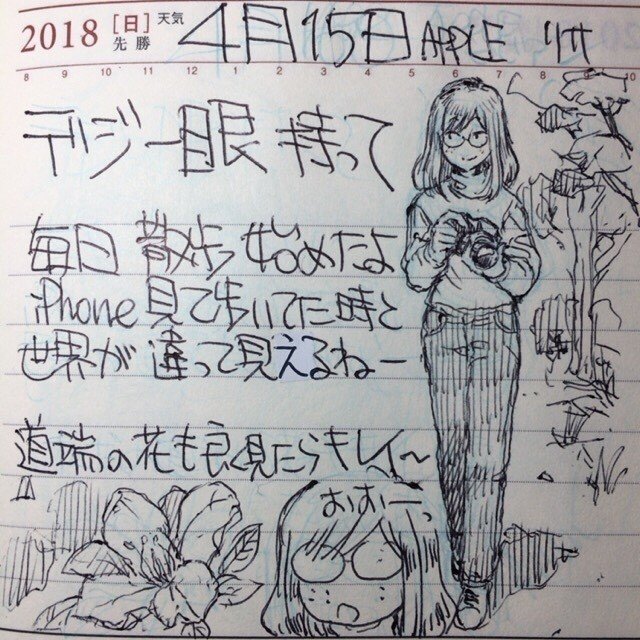 2018 [日] 先勝 天気 4月15日 APPLE リサ
8 9 10 11 12 1 2 3 4 5 6 7 8 9 10
デジ一眼 持って
毎日 散歩 始めたよ
iPhone 見て歩いてた時と
世界が 違って見えるねー
道端の花も良く見たらキレイ〜
おおーっ